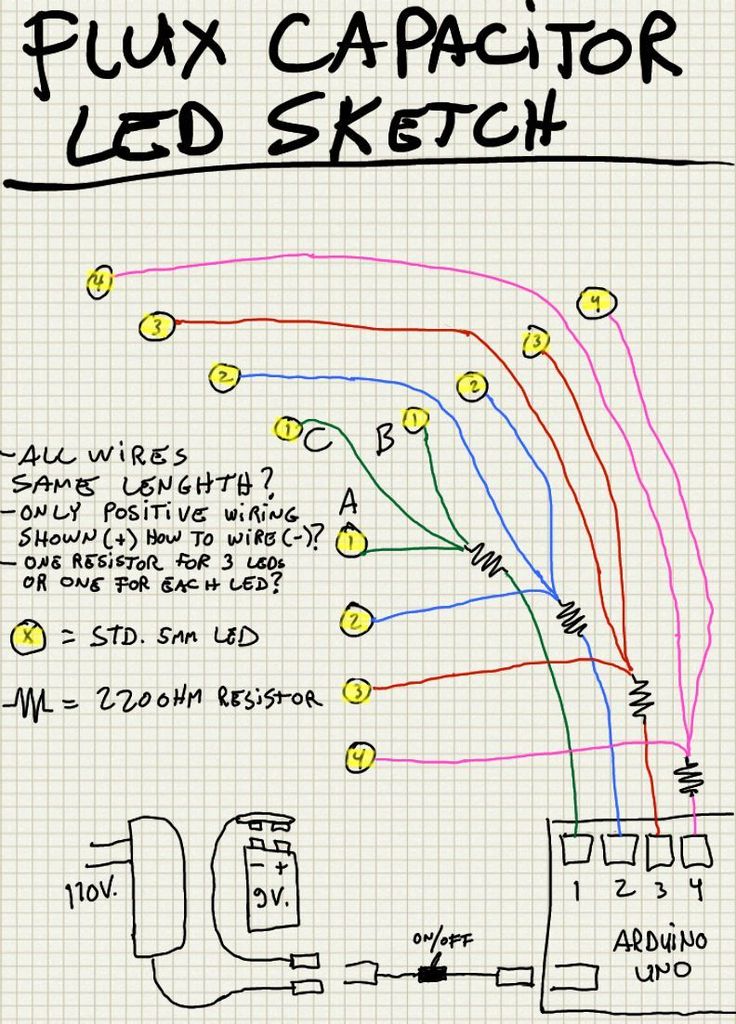 FLUX CAPACITOR
LED SKETCH
4
4
3
3
2
2
1
1
C
B
- ALL WIRES
SAME LENGHTH?
- ONLY POSITIVE WIRING
SHOWN (+) HOW TO WIRE (-)?
- ONE RESISTOR FOR 3 LEDS
OR ONE FOR EACH LED?
A
1
2
X = STD. 5MM LED
3
= 220 OHM RESISTOR
4
110V.
- +
9V.
ON/OFF
1 2 3 4
ARDUINO
UNO